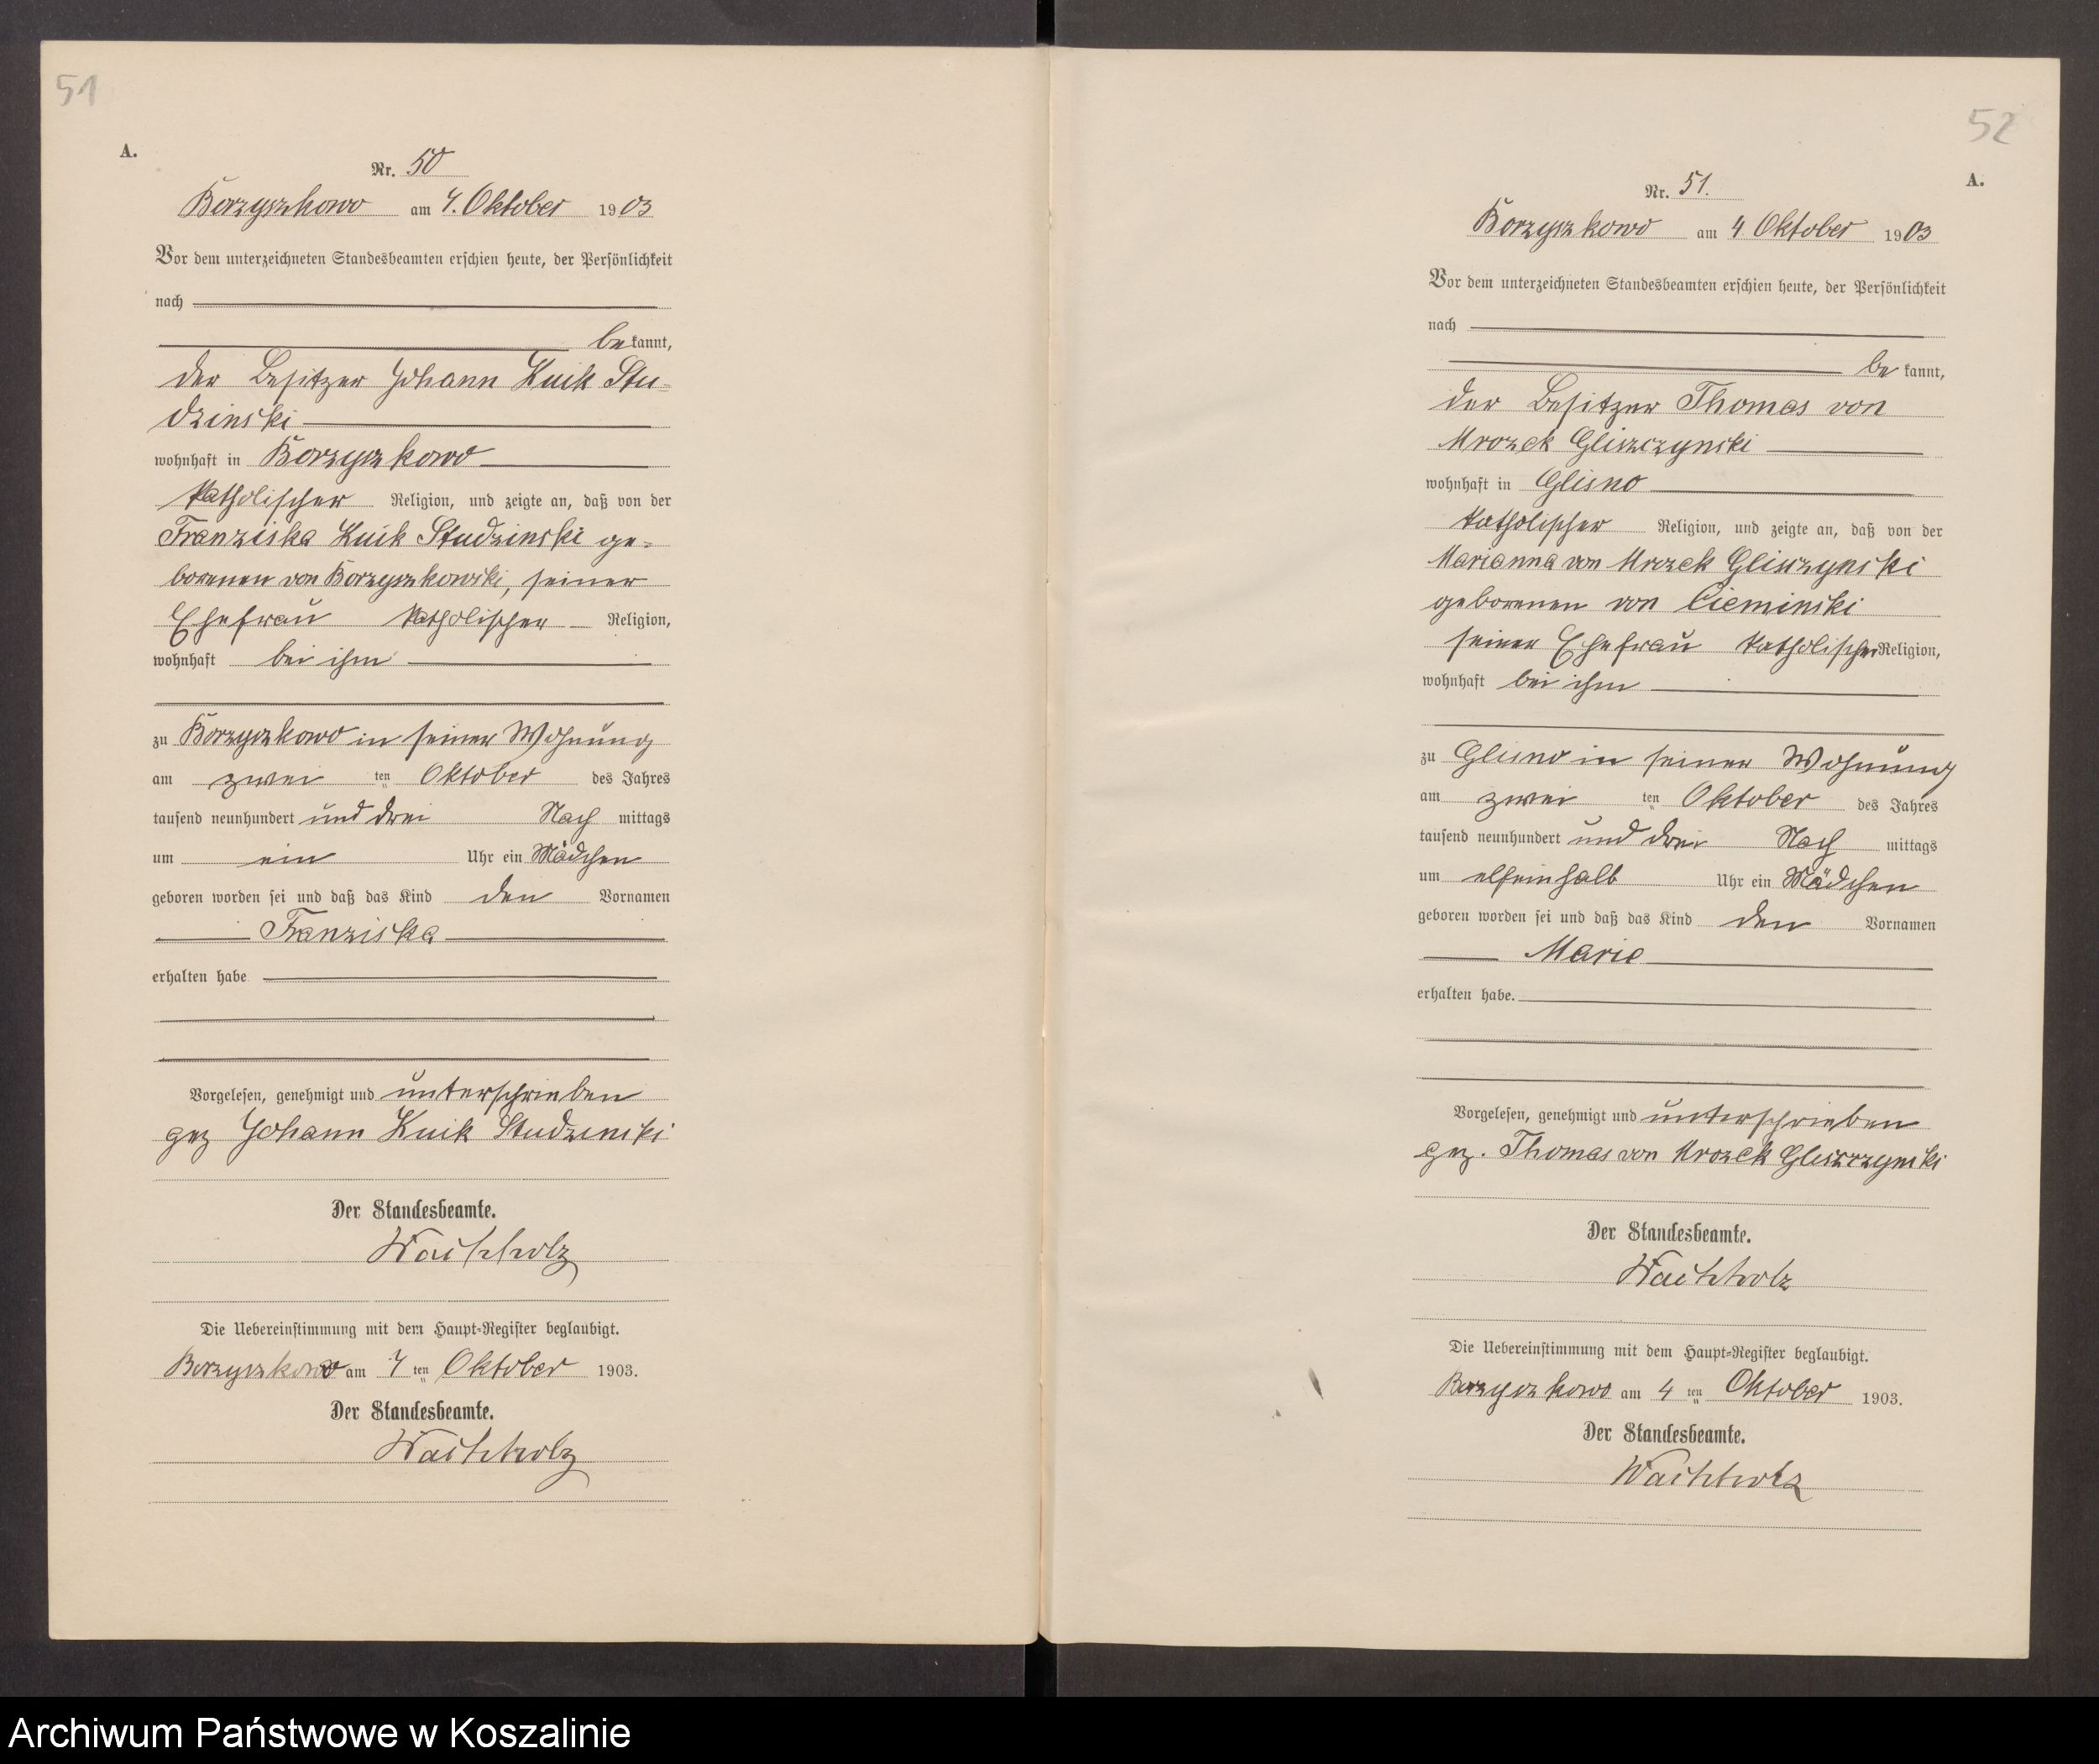 51
A.
Nr. 50
Borzyszkowo am 4. Oktober 1903
Vor dem unterzeichneten Standesbeamten erschien heute, der Persönlichkeit
nach
bekannt,
der Besitzer Johann Kuik Stu-
dzinski
wohnhaft in Borzyszkowo
katholischer Religion, und zeigte an, daß von der
Franziska Kuik Studzinski ge-
borenen von Borzyszkowski, seiner
Ehefrau katholischer Religion,
wohnhaft bei ihm
zu Borzyszkowo in seiner Wohnung
am zwei ten Oktober des Jahres
tausend neunhundert und drei Nach mittags
um ein Uhr ein Mädchen
geboren worden sei und daß das Kind den Vornamen
Franziska
erhalten habe
Vorgelesen, genehmigt und unterschrieben
gez Johann Kuik Studzinski
Der Standesbeamte.
Wachholz
Die Uebereinstimmung mit dem Haupt-Register beglaubigt.
Borzyszkowo am 4 ten Oktober 1903.
Der Standesbeamte.
Wachholz
52
A.
Nr. 51.
Borzyszkowo am 4 Oktober 1903
Vor dem unterzeichneten Standesbeamten erschien heute, der Persönlichkeit
nach
bekannt,
der Besitzer Thomas von
Mrozek Gliszczynski
wohnhaft in Glisno
katholischer Religion, und zeigte an, daß von der
Marianna von Mrozek Gliszzynski
geborenen von Cieminski
seiner Ehefrau katholischer Religion,
wohnhaft bei ihm
zu Glisno in seiner Wohnung
am zwei ten Oktober des Jahres
tausend neunhundert und drei Nach mittags
um elfeinhalb Uhr ein Mädchen
geboren worden sei und daß das Kind den Vornamen
Marie
erhalten habe.
Vorgelesen, genehmigt und unterschrieben
gez. Thomas von Mrozek Gliszczynski
Der Standesbeamte.
Wachholz
Die Uebereinstimmung mit dem Haupt-Register beglaubigt.
Borzyszkowo am 4 ten Oktober 1903.
Der Standesbeamte.
Wachholz
Archiwum Państwowe w Koszalinie